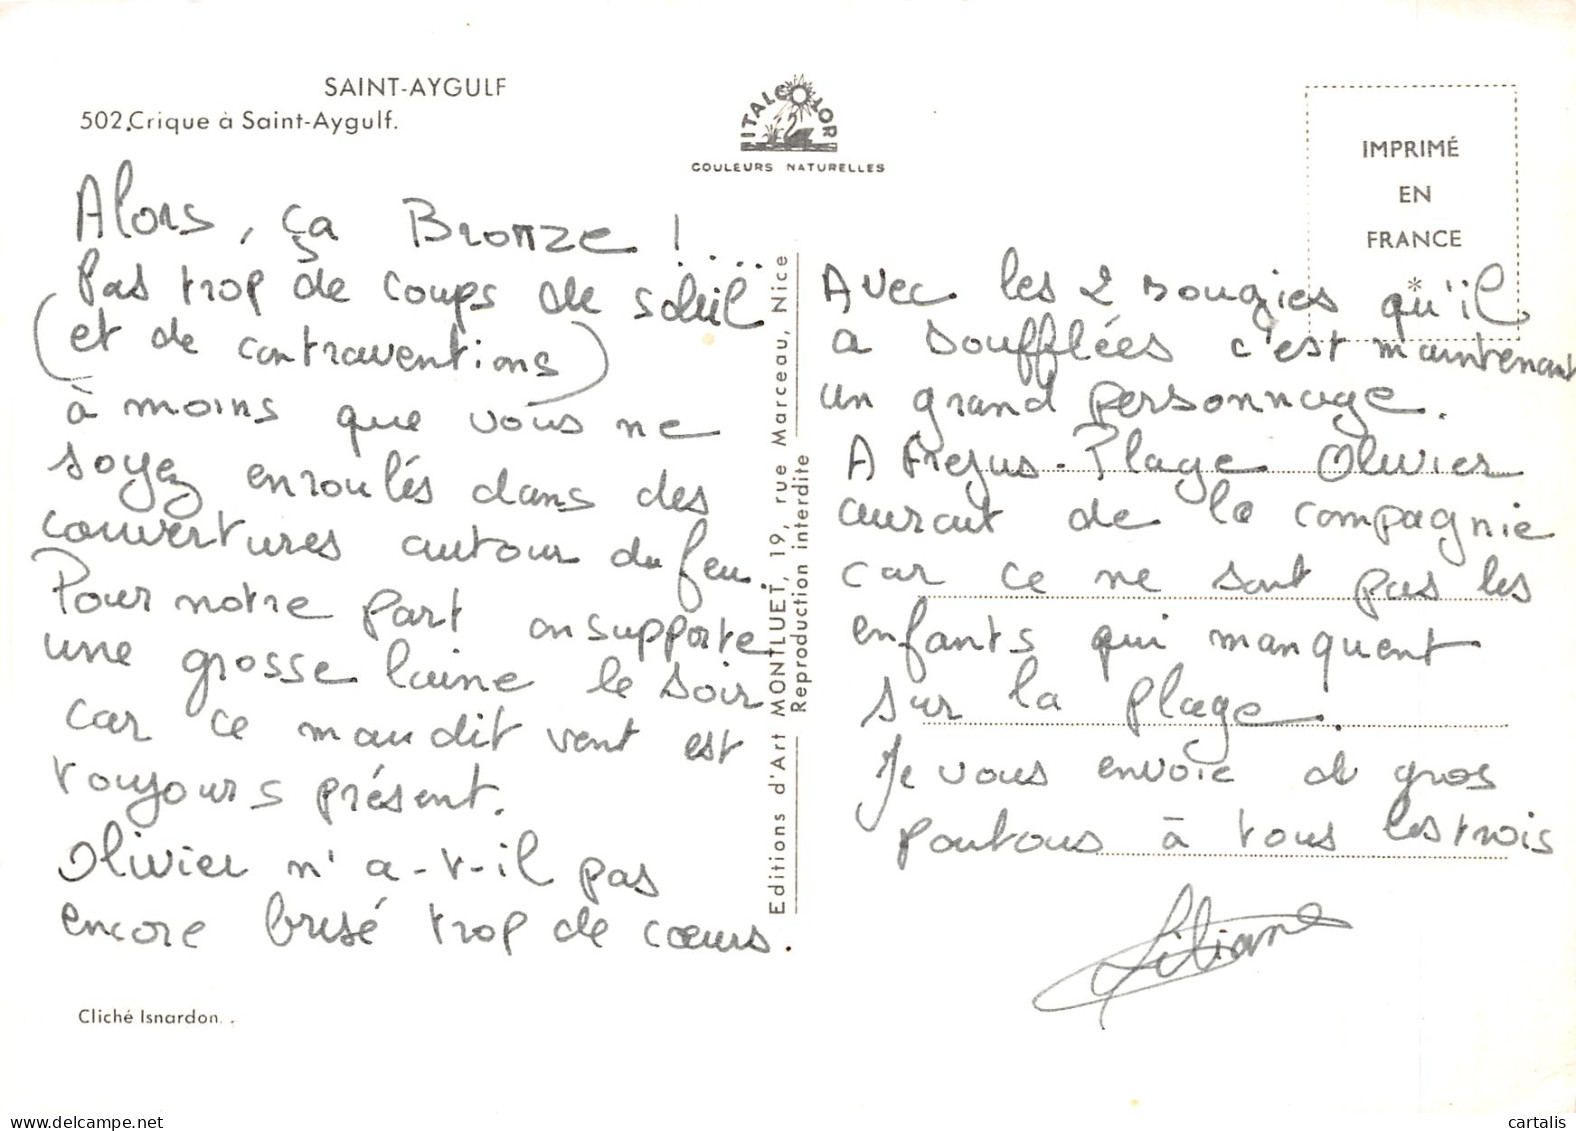 SAINT-AYGULF
502. Crique à Saint-Aygulf.
ITALCOLOR
COULEURS NATURELLES
IMPRIMÉ
EN
FRANCE
*
Alors, ça Bronze !....
Pas trop de coups de soleil
(et de contraventions)
à moins que vous ne
soyez enroulés dans des
couvertures autour du feu.
Pour notre part on supporte
une grosse laine le soir
car ce maudit vent est
toujours présent.
Olivier n'a-t-il pas
encore brisé trop de cœurs.
Cliché Isnardon. .
Editions d'Art MONTLUET, 19, rue Marceau, Nice
Reproduction interdite
Avec les 2 Bougies qu'il
a soufflées c'est maintenant
un grand personnage.
A Frejus-Plage Olivier
aurait de la compagnie
car ce ne sont pas les
enfants qui manquent
sur la plage.
Je vous envoie de gros
poutous à tous les trois
Liliane
cartalis
www.delcampe.net